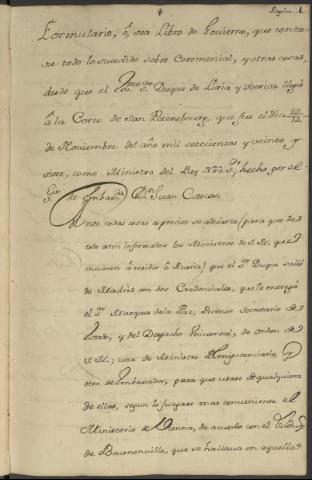 1
Formulario, ó sea Libro de Govierno, que contie-
ne todo lo sucedido sobre Ceremonial, y otras cosas,
desde que el Exmo. Sr. Duque de Liria y Xerica llegó
á la Corte de San Petersbourg, que fue el dia
de Noviembre del año mil setecientos y veinte y
siete, como Ministro del Rey Nro. Sr. hecho por el
Srio. de Embaxda. Dn. Juan Cascos.
Ante todas cosas es preciso se advierta (para que es-
tén informados los Ministros de S.M. que
vinieren á residir á Rusia) que el Sr. Duque salió
de Madrid con dos Credenciales, que le entregó
el Sr. Marques de la Paz, Primer Secretario de
Estado, y del Despacho Universal, de orden de
S.M.; una de Ministro Plenipotenciario, y
otra de Embaxador, para que usase de qualquiera
de ellas, segun lo juzgase mas conveniente el
Ministerio de Vienna, de acuerdo con el Duque
de Bournonville, que se hallava en aquella